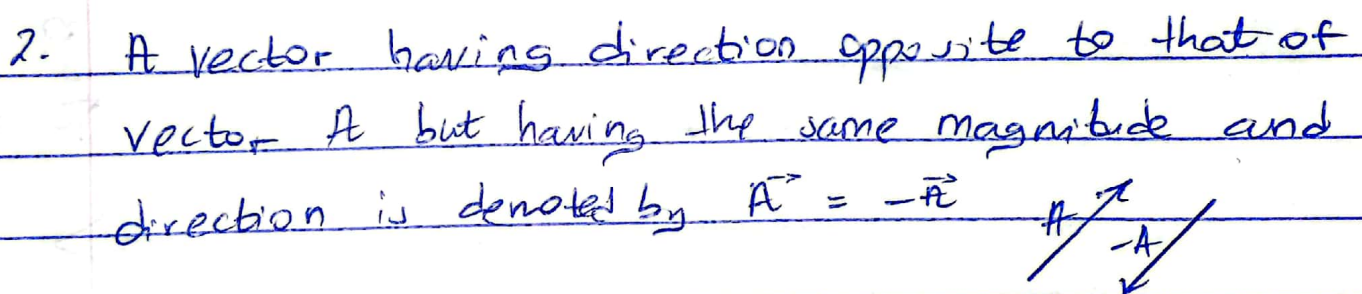 2. A vector having direction opposite to that of
vector A but having the same magnitude and
direction is denoted by A⃗ = -A⃗
A
-A